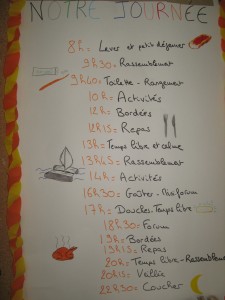 NOTRE JOURNÉE
8h = Lever et petit déjeuner
9h30 = Rassemblement
9h40 = Toilette - Rangement
10h = Activités
12h = Bordées
12h15 = Repas
13h = Temps libre et calme
13h45 = Rassemblement
14h = Activités
16h30 = Goûter -
17h = Douches - Temps libre
18h30 = Forum
19h = Bordées
19h15 = Repas
20h = Temps libre - Rassemblement
20h15 = Veillée
22h30 = Coucher